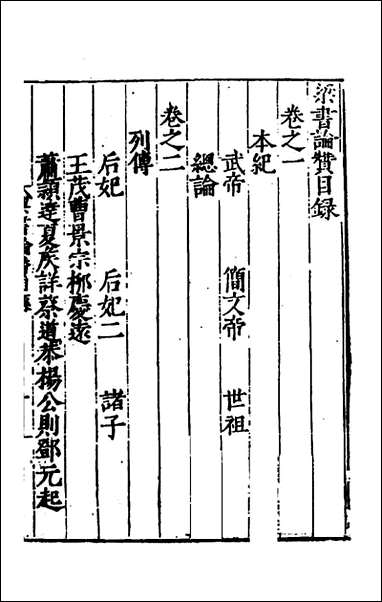 梁書論賛目錄
卷之一
本紀
武帝 簡文帝 世祖
總論
卷之二
列傳
后妃 后妃二 諸子
王茂曹景宗栁慶遠
蕭頴達夏侯詳蔡道恭楊公則鄧元起